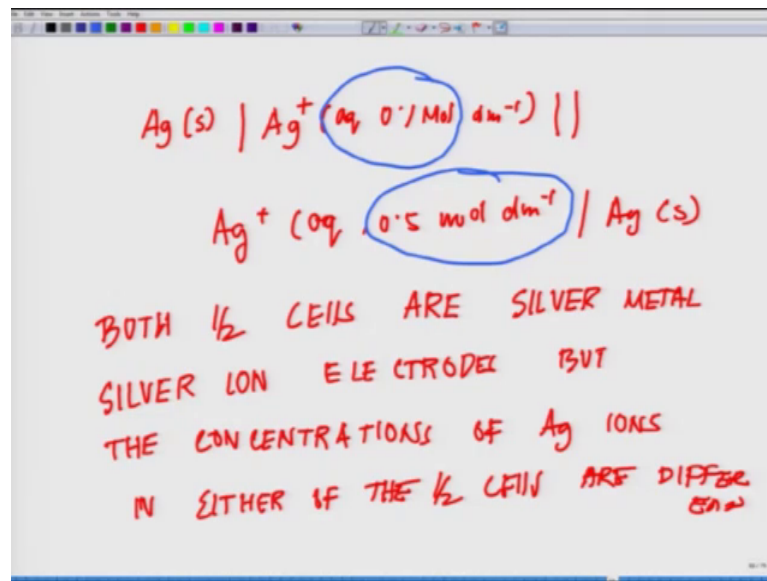 Ag (s) | Ag⁺ (aq 0.1 Mol dm⁻¹) ||
Ag⁺ (aq, 0.5 mol dm⁻¹) | Ag (s)
BOTH 1/2 CELLS ARE SILVER METAL
SILVER ION ELECTRODES BUT
THE CONCENTRATIONS OF Ag IONS
IN EITHER OF THE 1/2 CELLS ARE DIFFER